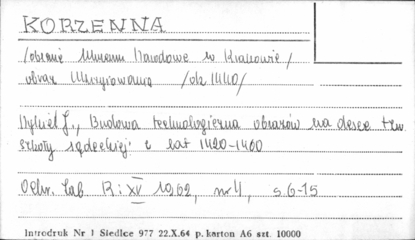 KORZENNA
/obecnie Muzeum Narodowe w Krakowie/
obraz Ukrzyżowania /ok 1440/
J., Budowa technologiczna obrazów na desce tzw.
szkoły sądeckiej z lat 1420-1460
Ochr. Zab. R: XV 1962, nr 4, s. 6-15
Introdruk Nr 1 Siedlce 977 22.X.64 p. karton A6 szt. 10000